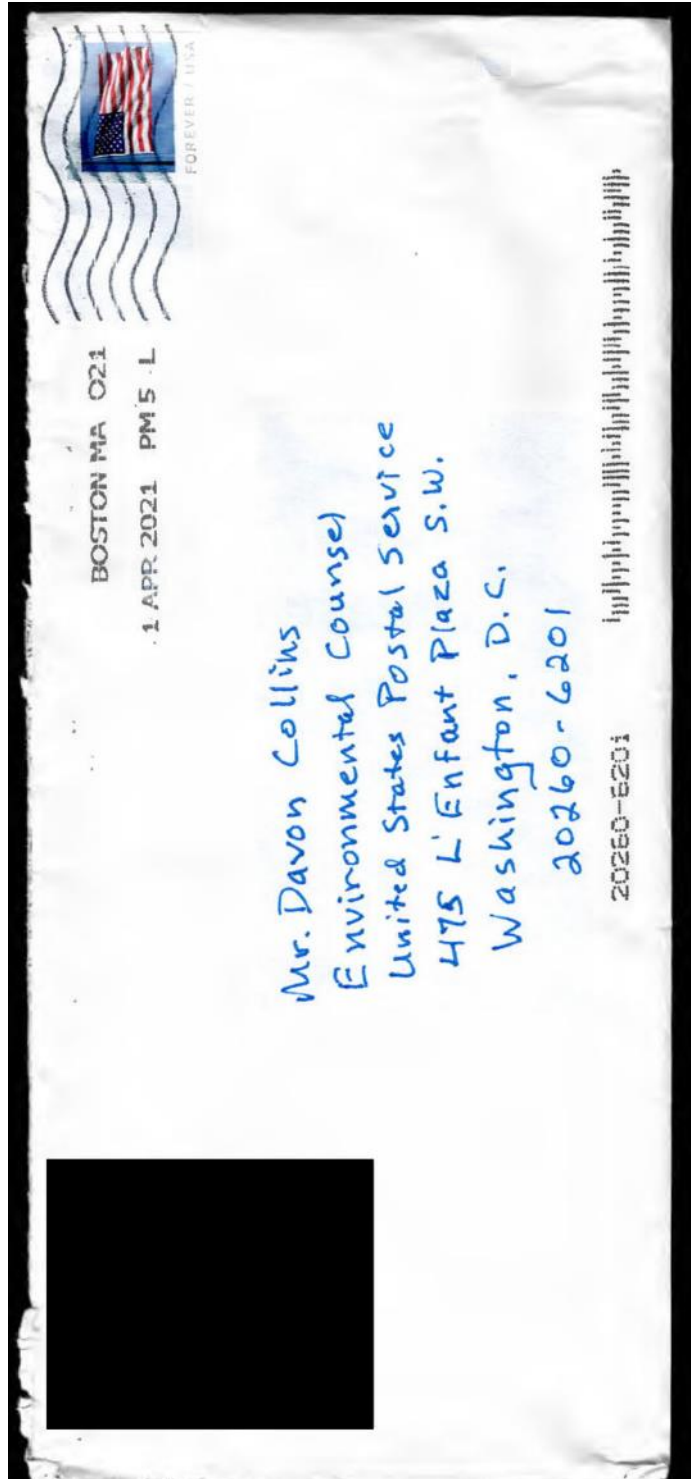 BOSTON MA 021
1 APR 2021 PM 5 L
FOREVER / USA
Mr. Davon Collins
Environmental Counsel
United States Postal Service
475 L'Enfant Plaza S.W.
Washington, D.C.
20260-6201
20260-6201